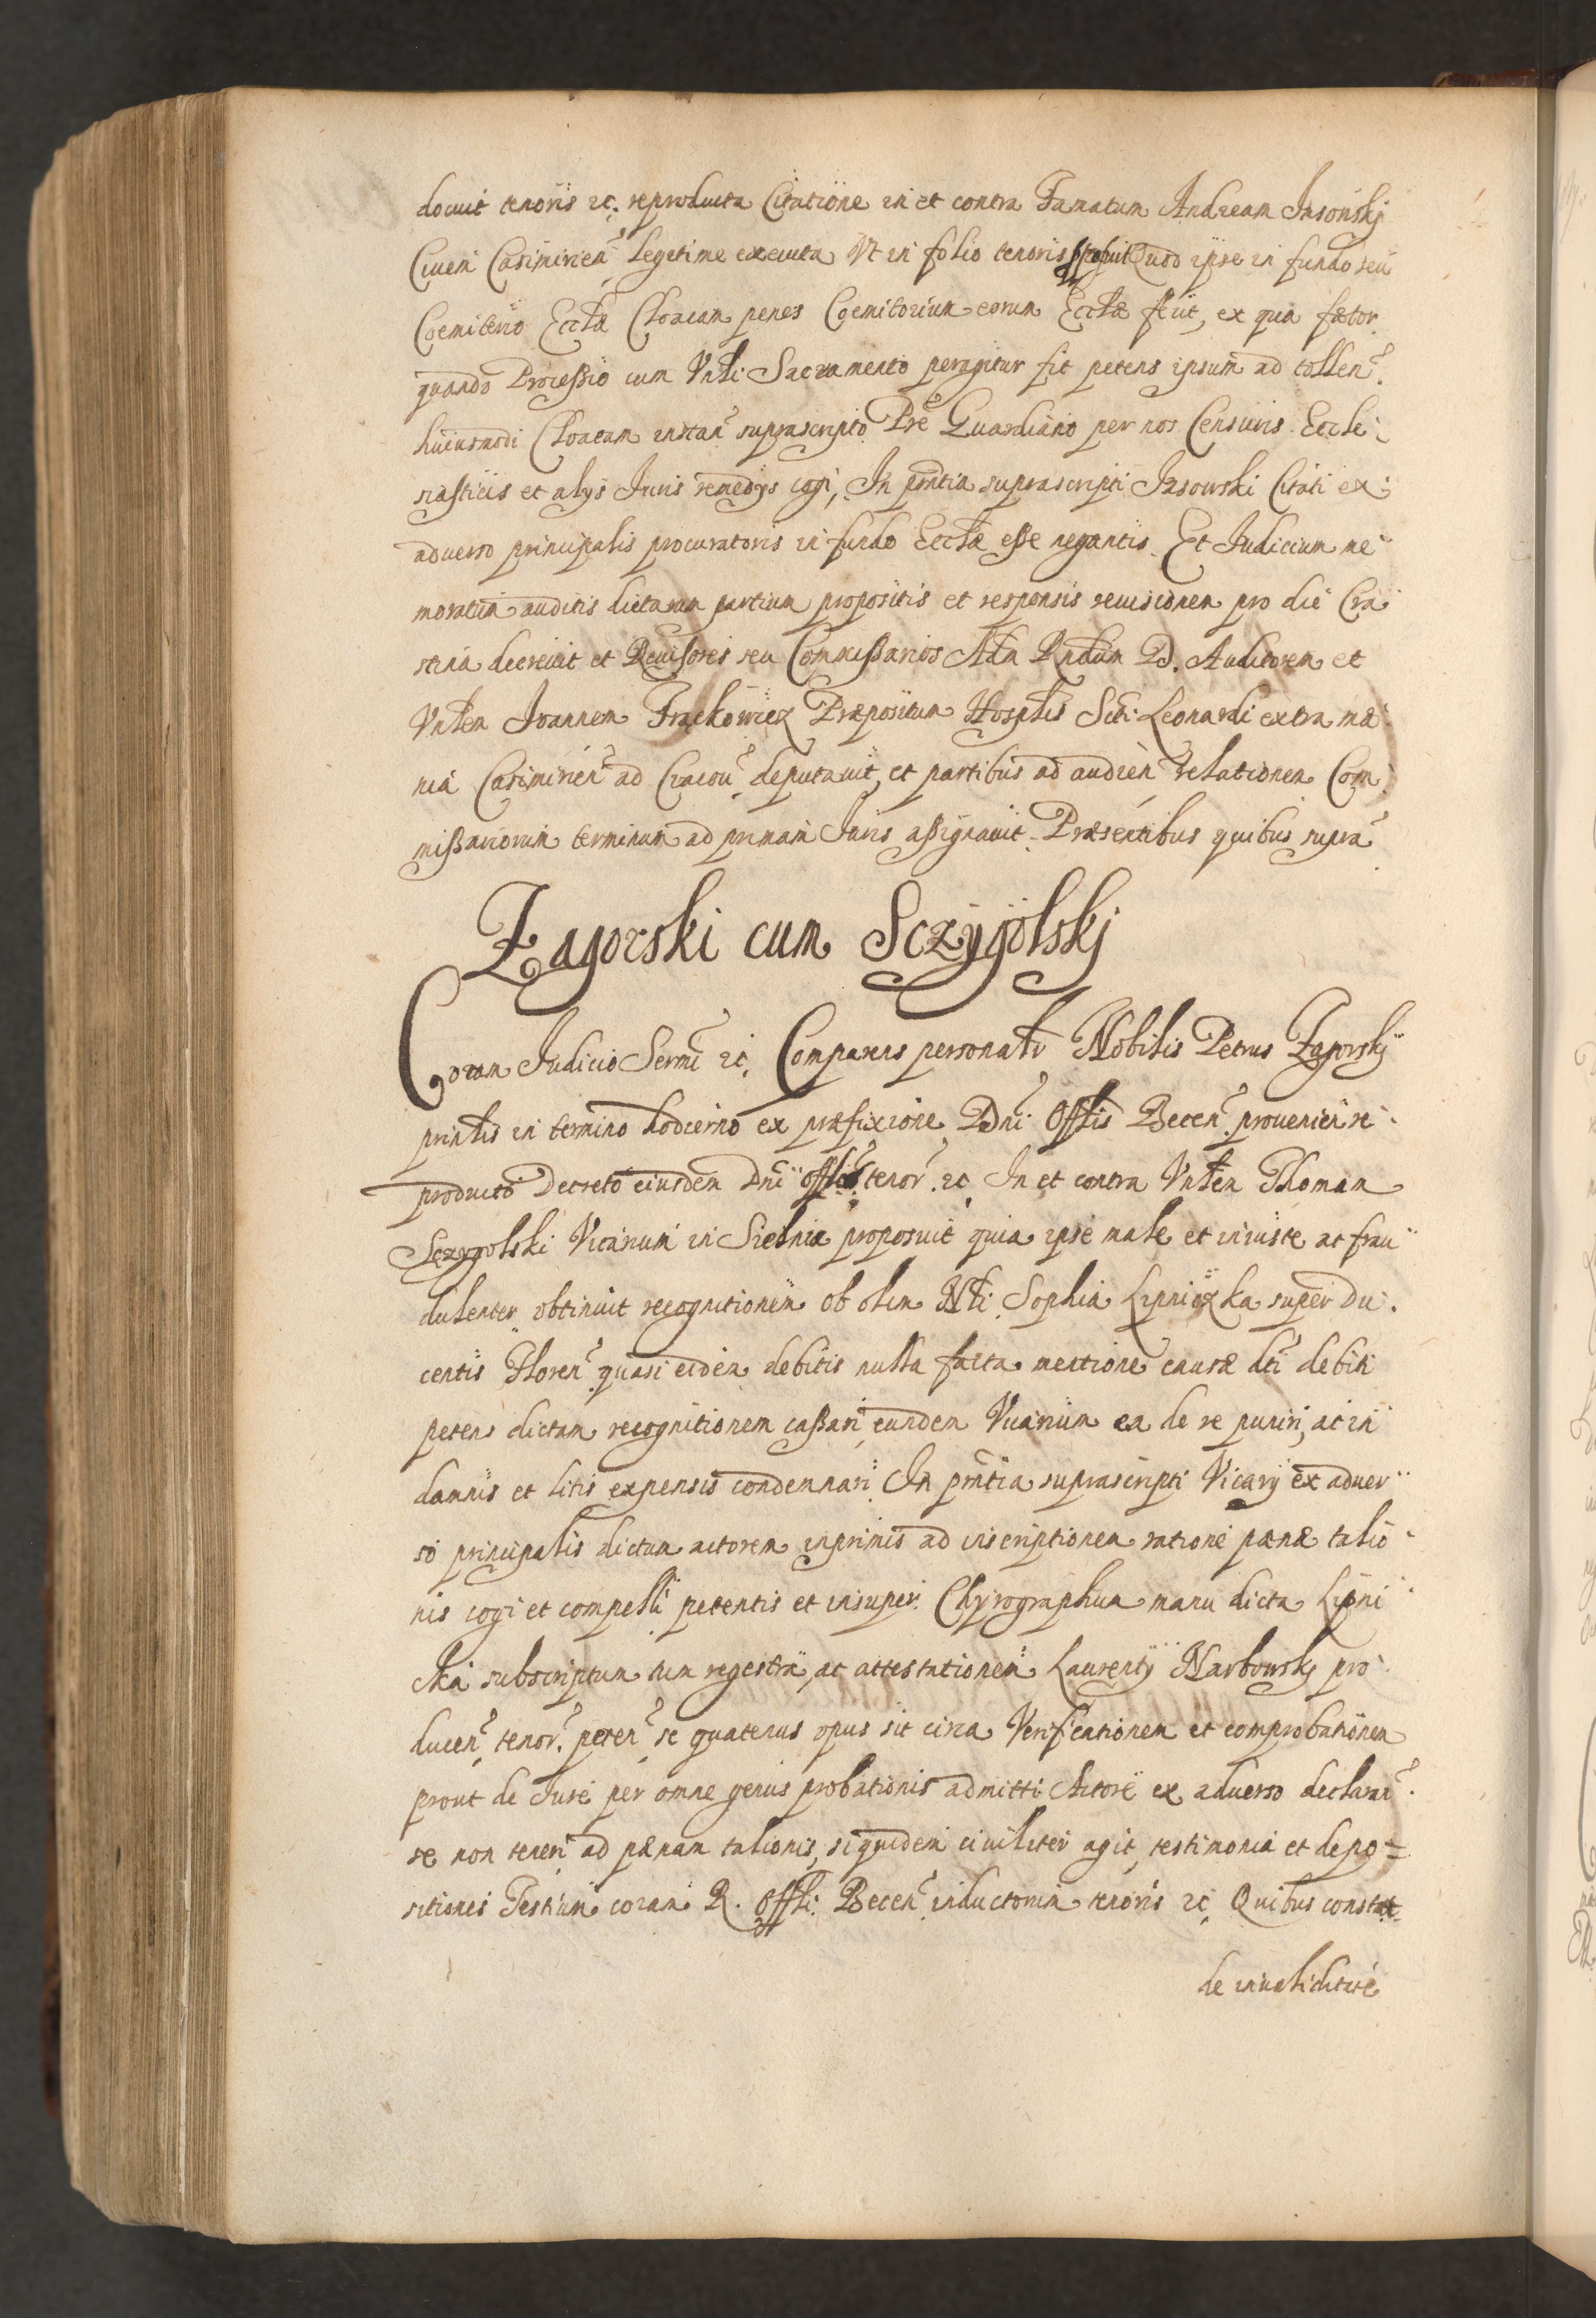 docuit tenoris etc. reproducta Citatione in et contra Famatum Andream Jasońskj
Ciuem Casimirien̄ legitime executa Vt in folio tenoris pposuit Quod ipse in fundo seu
Coemiterio Ecclæ Cloacam penes Coemitorium eorum Ecclæ fecit, ex qua fætor
quando Processio cum Vnbli Sacramento peragitur fit petens ipsum ad tollen̄
huiusmodi Cloacam instan̄ suprascripto Pre Guardiano per nos Censuris Eccle:
siasticis et alys Juris remedys cogi, In pn̄tia suprascripti Jasowski Citati ex
aduerso principalis procuratoris in fundo Ecclæ esse negantis. Et Judicium me
moratum auditis dictarum partium propositis et responsis reuisionem pro die Cra
stina decreuit et Reuisores seu Commissarios Adm Rndum D. Auditorem et
Vnblem Joannem Frąckowicz Præpositum Hosplis Scti Leonardi extra mæ
nia Casimirien̄ ad Cracou deputauit, et partibus ad audien̄ relationem Com
missariorum terminum ad primam Juris assignauit. Præsentibus quibus supra
Zagorski cum Sczygolskj
Coram Judicio Sermi etc. Comparens personalr Nobilis Petrus Zagorskj
prinlis in termino hodierno ex præfixione Dni Offlis Becen̄ prouenien re
producto Decreto eiusdem Dni offlis tenor. etc. In et contra Vnblem Thomam
Sczygolski Vicarium in Sielnia proposuit quia ipse male et iniuste ac frau
dulenter obtinuit recognitionem ob olim Nbli Sophia Lipniczka super Du
centis Floren̄ quasi eidem debitis nulla facta mentione causæ dti debiti
petens dictam recognitionem cassari eundem Vicarium ea de re puniri, ac in
damnis et litis expensis condemnari In pn̄tia suprascripti Vicary ex aduer
so principalis dictum actorem inprimis ad inscriptionem ratione pænæ talio
nis cogi et compelli petentis et insuper Chyrographum manu dicta Lipni
cka subscriptum tum regestra, ac attestationem Laurenty Narbowskj pro
ducen̄ tenor. peten̄ se quatenus opus sit circa Verificationem et comprobationem
prout de Jure per omne genus probationis admitti Actore ex aduerso declaran̄
se non teneri ad pænam talionis, siquidem ciuiliter agit, testimonia et depo=
sitiones Testium coram R. Offli Becen̄ inductorum tenoris etc. Quibus constat
de inualiditate